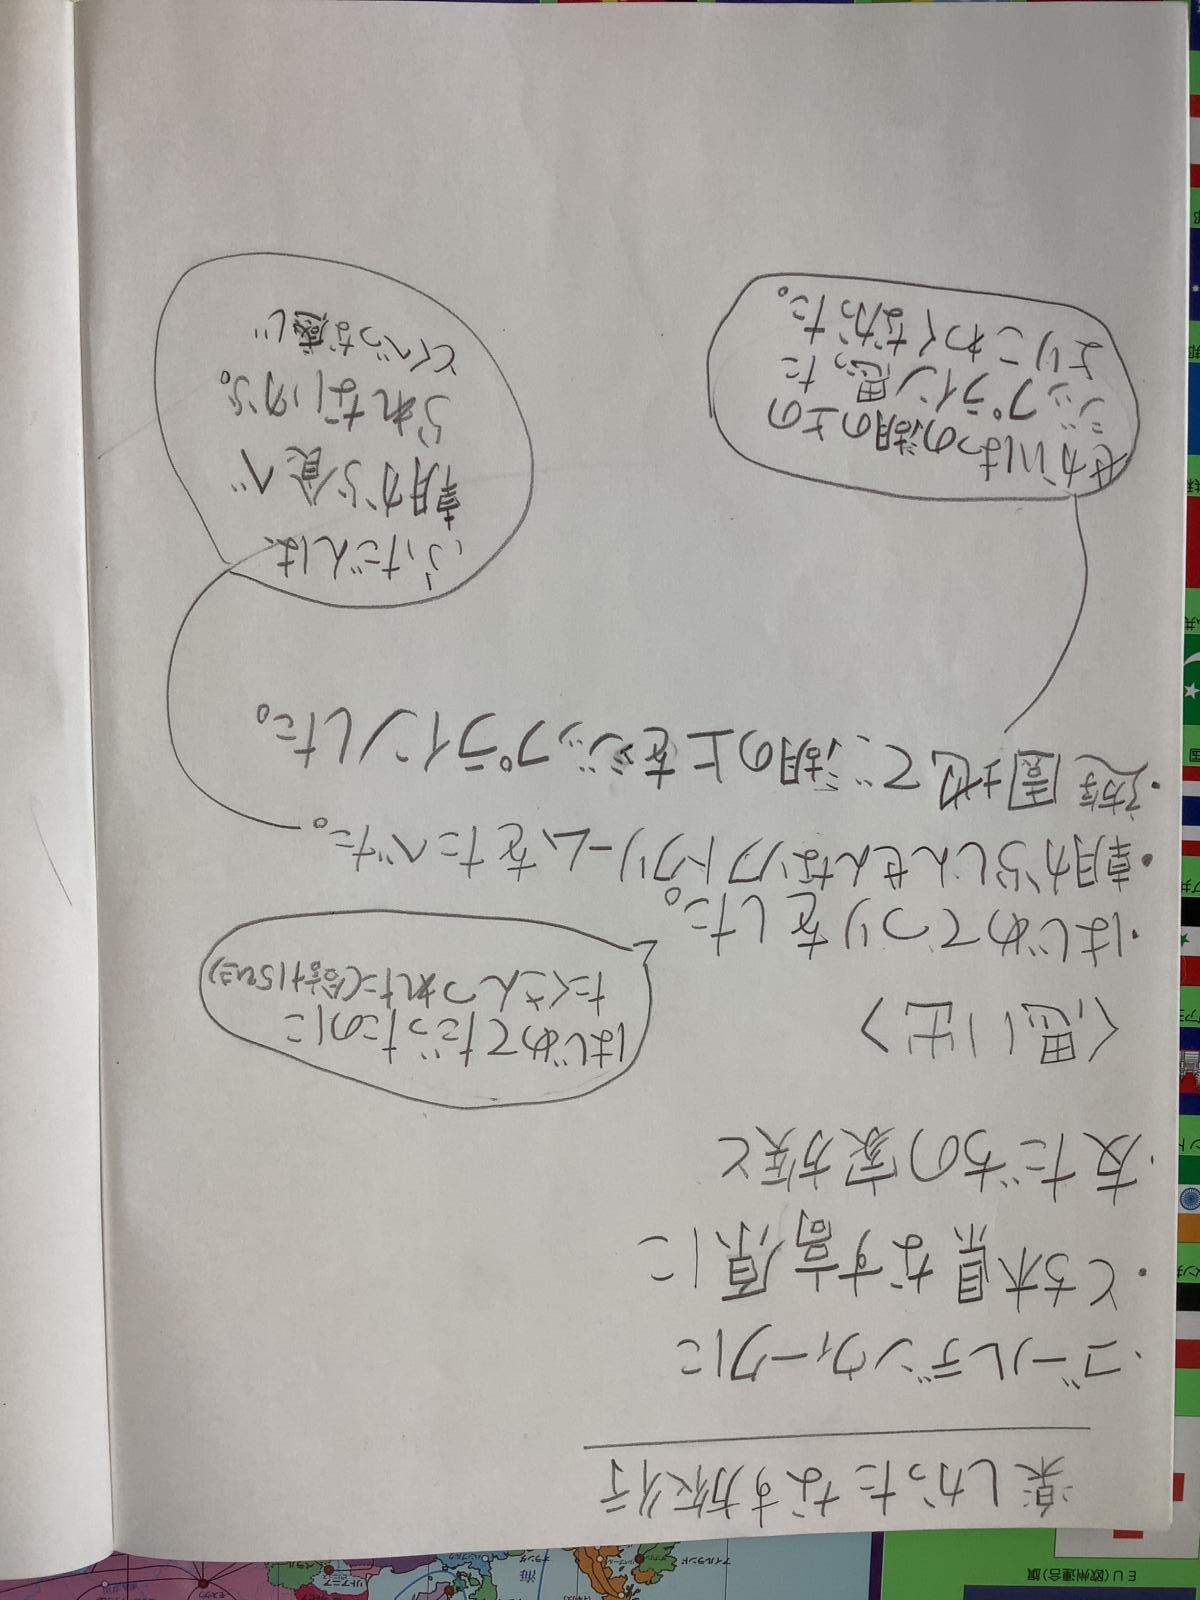 楽しかったなす旅行
・ゴールデンウィークに
・とち木県なす高原に
・友だちの家族と
〈思い出〉
・はじめてつりをした。
はじめてだったのに
たくさんつれた(合計15ひき)
・朝からしんせんなソフトクリームをたべた。
・遊園地で湖の上をジップラインした。
ふだんは、
朝から食べ
られないから。
とくべつな感じ
せかいはつの湖の上の
ジップライン思った
よりこわくなかった。
EU(欧州連合)旗
アイルランド
リトアニア
モスクワ